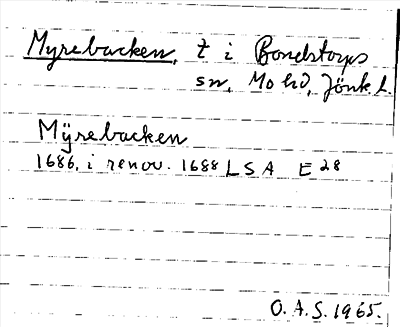 Myrebacken, t i Bondstorps
sn, Mo hd, Jönk. l.
Mÿrebacken
1686, i renov. 1688 LSA E 28
O.A.S. 1965.